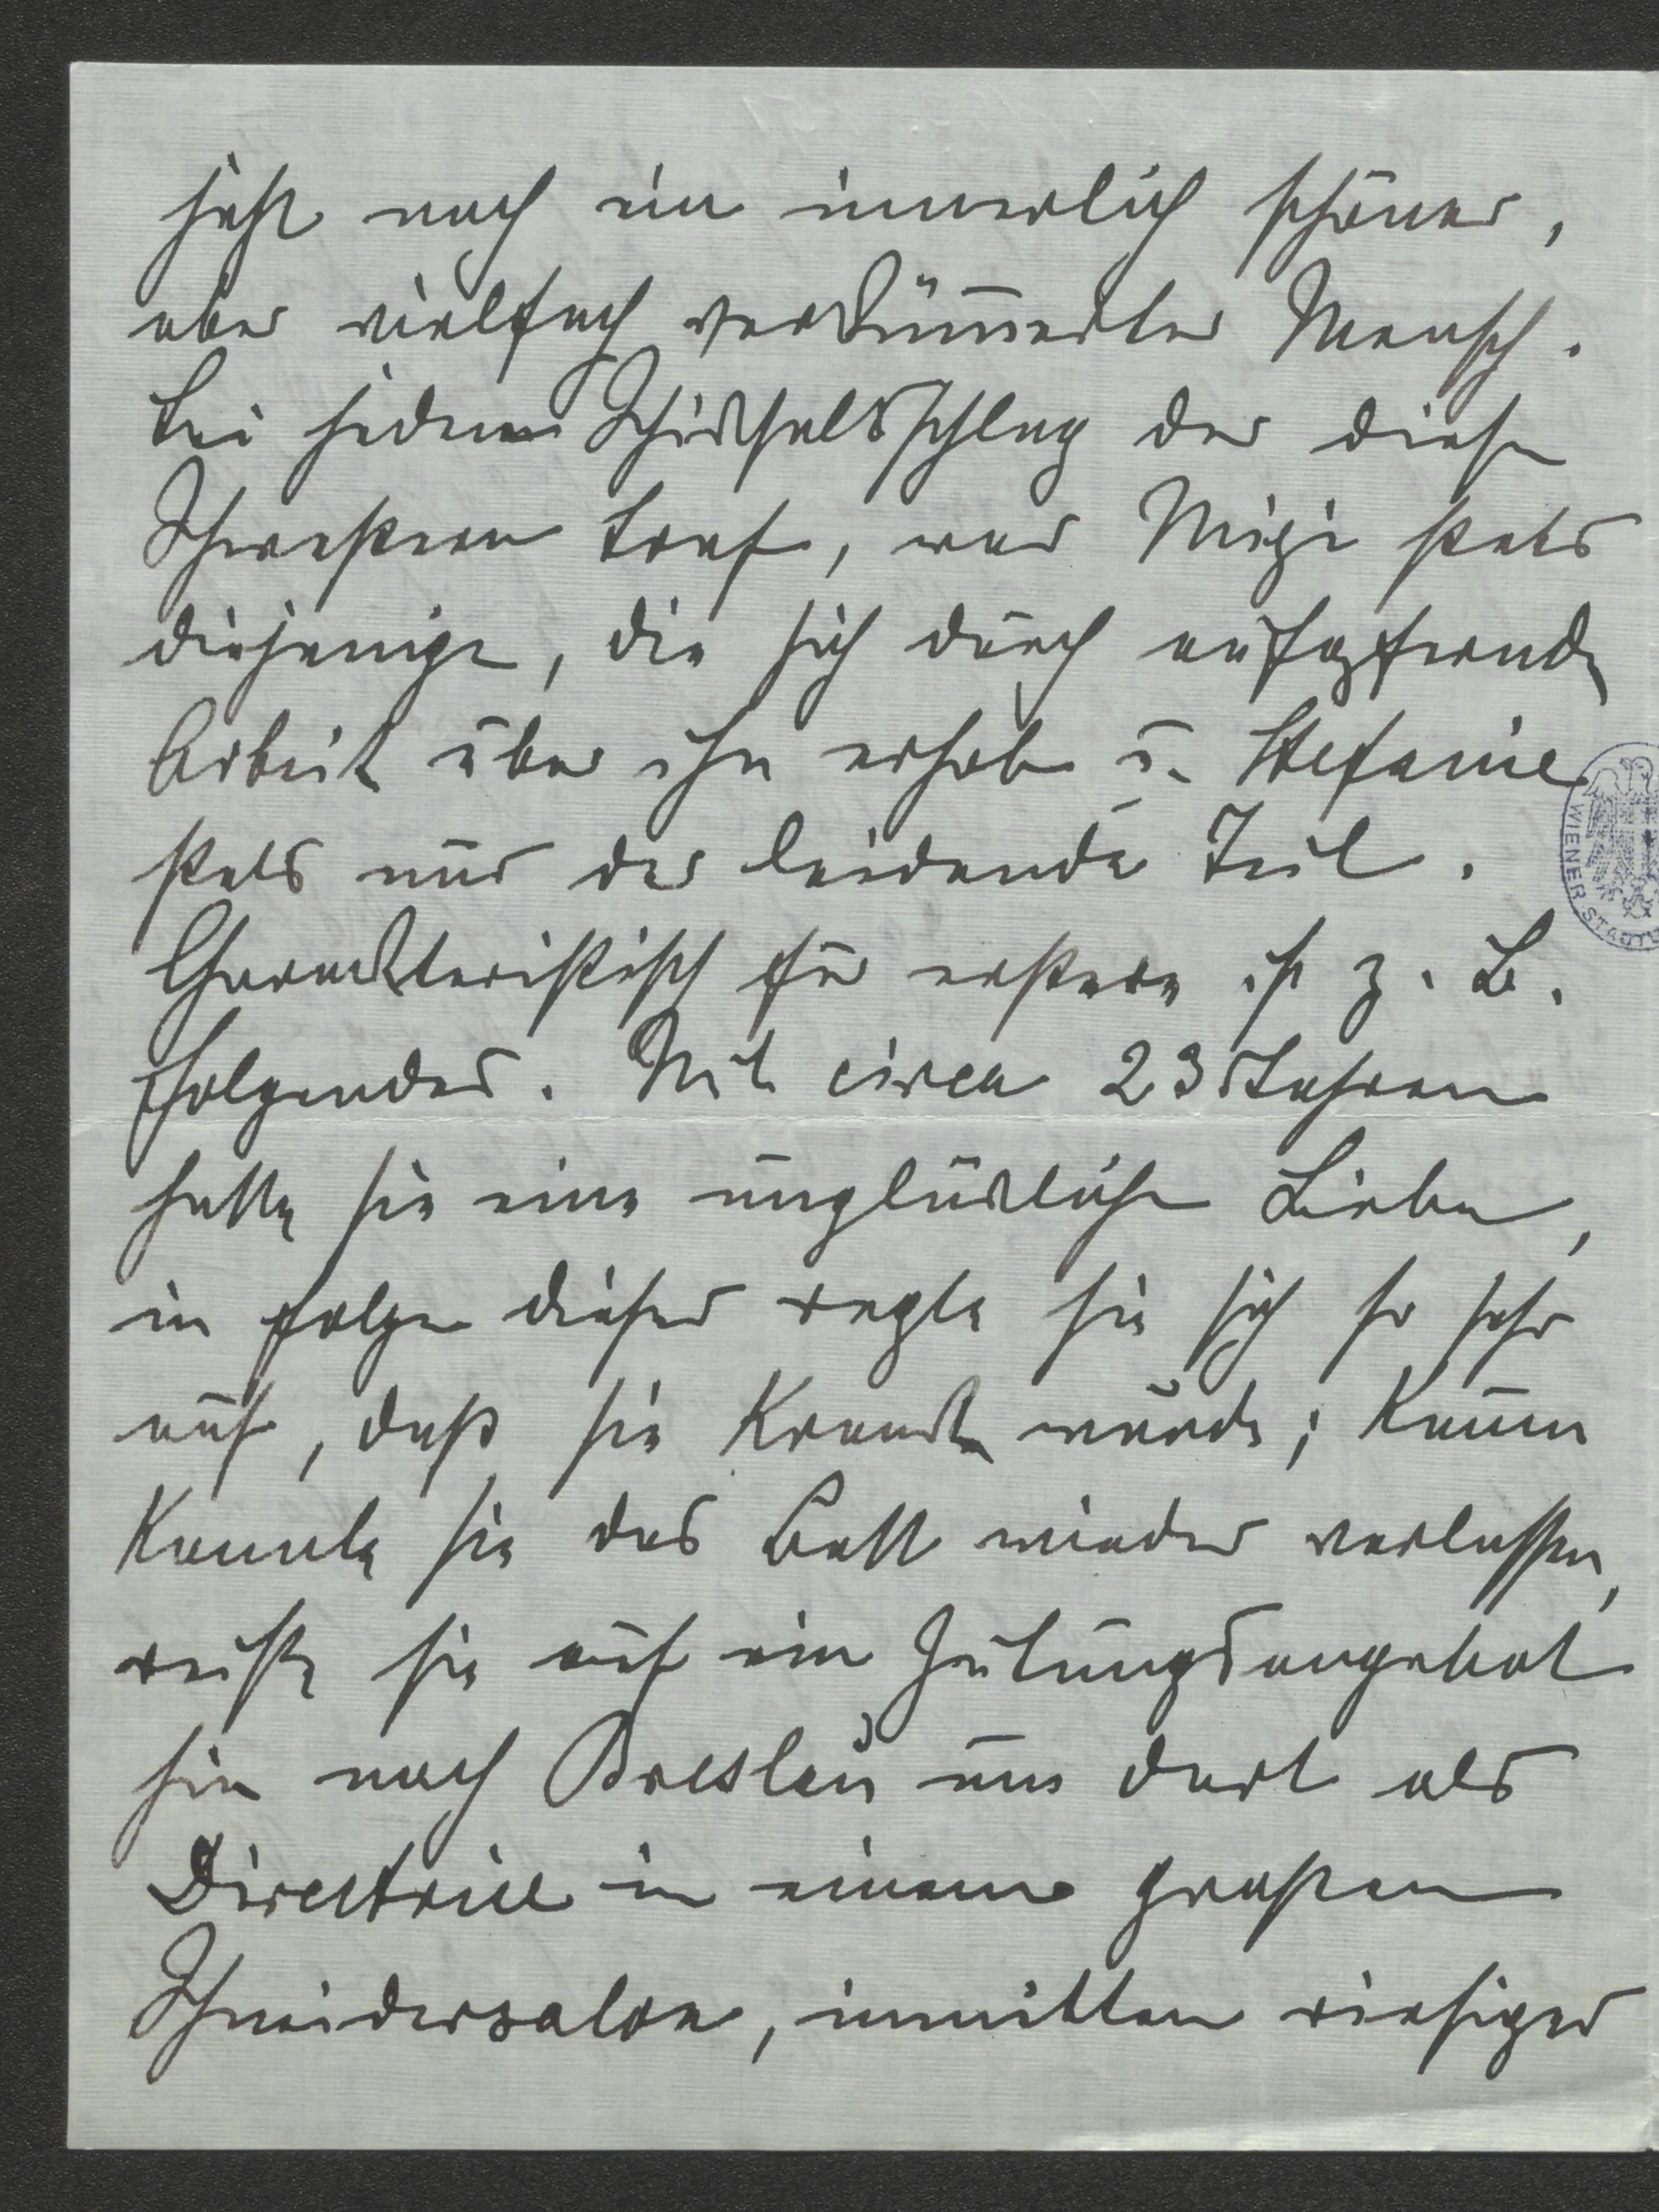 jetzt noch ein innerlich schöner,
aber vielfach verkümmerter Mensch.
Bei jedem Schicksalsschlag der diese
Schwestern traf, war Mizi stets
diejenige, die sich durch aufopfernde
Arbeit über ihn erhob u. Stefanie
stets nur der leidende Teil.
Charackteristisch für erstere ist z. B.
folgendes. Mit circa 23 Jahren
hatte sie eine unglückliche Liebe,
in folge dieser regte sie sich so sehr
auf, daß sie krank wurde; kaum
konnte sie das Bett wieder verlassen,
reiste sie auf ein Zeitungsangebot
hin nach Breslau um dort als
Directrice in einem großen
Schneidersalon, inmitten riesiger
WIENER STADT